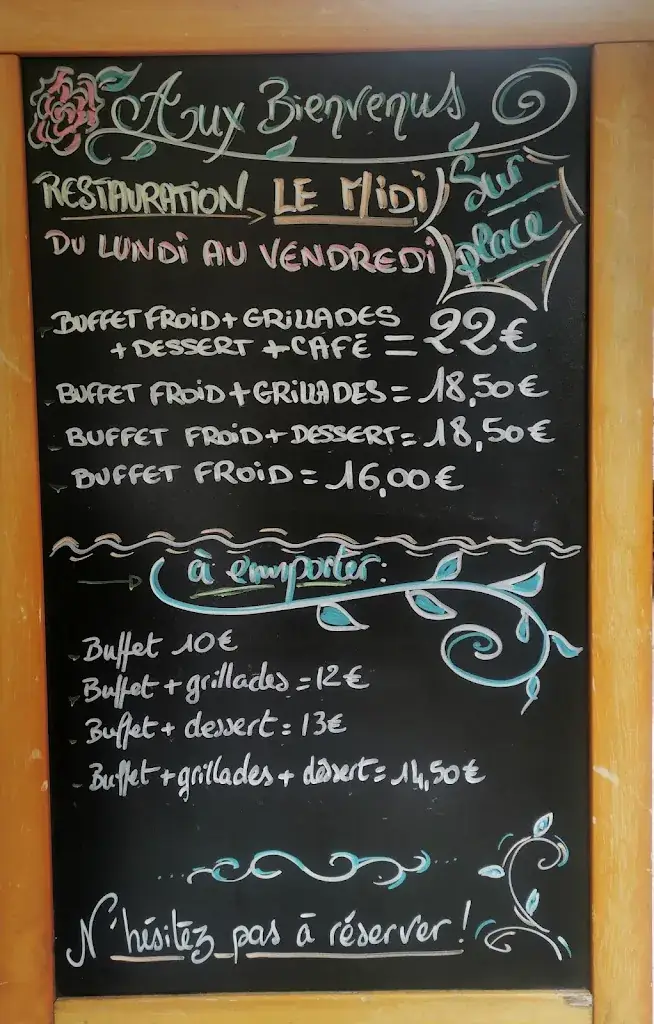 Aux Bienvenus
RESTAURATION LE MIDI
Sur place
DU LUNDI AU VENDREDI
- BUFFET FROID + GRILLADES
+ DESSERT + CAFÉ = 22€
- BUFFET FROID + GRILLADES = 18,50€
- BUFFET FROID + DESSERT = 18,50€
- BUFFET FROID = 16,00€
à emporter:
- Buffet 10€
- Buffet + grillades = 12€
- Buffet + dessert = 13€
- Buffet + grillades + dessert = 14,50€
N'hésitez pas à réserver !